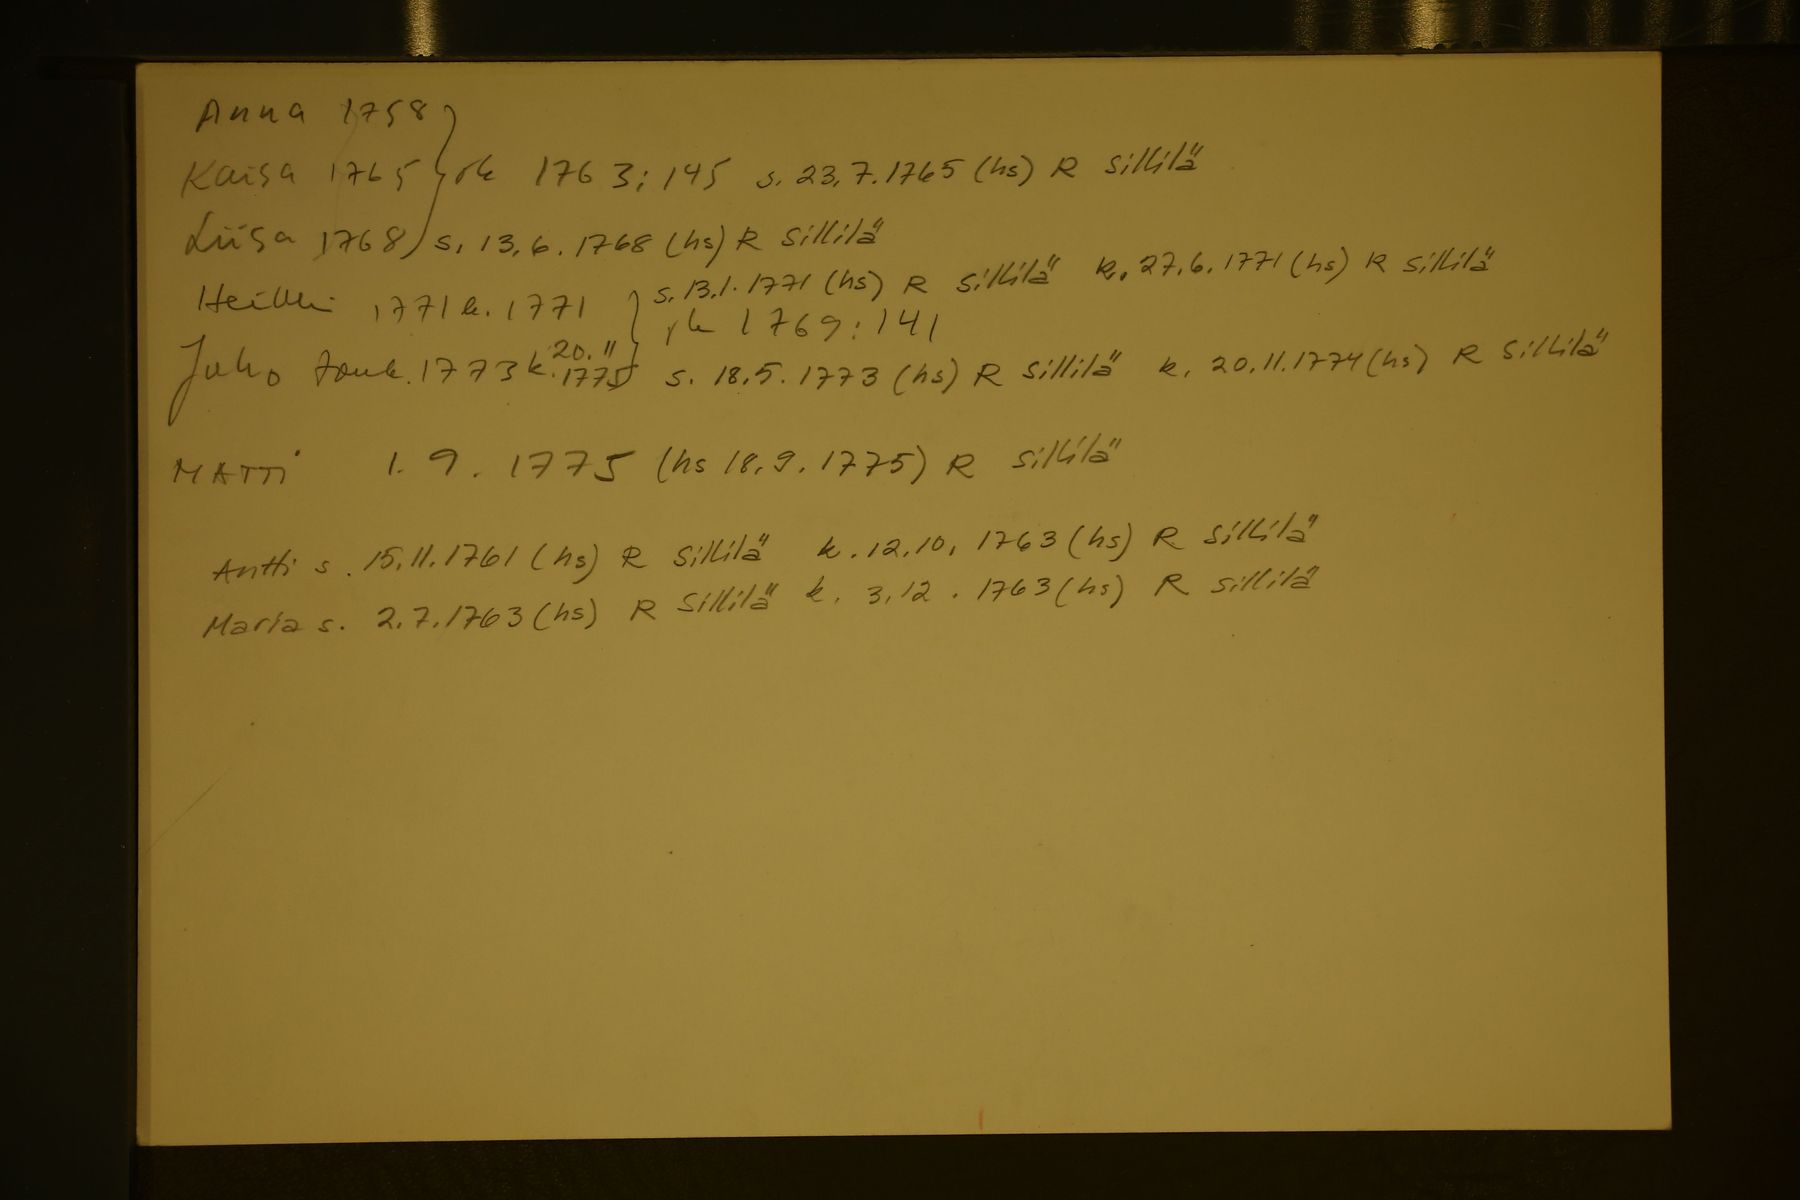 Anna 1758
Kaisa 1765 rk 1763:145 s. 23.7.1765 (hs) R Sillilä
Liisa 1768 s. 13.6.1768 (hs) R Sillilä
Heikki 1771 k. 1771 s. 13.1.1771 (hs) R Sillilä k. 27.6.1771 (hs) R Sillilä
rk 1769:141
Juho touk. 1773 k. 20.11 1775 s. 18.5.1773 (hs) R Sillilä k. 20.11.1774 (hs) R Sillilä
MATTI 1.9.1775 (hs 18.9.1775) R Sillilä
Antti s. 15.11.1761 (hs) R Sillilä k. 12.10.1763 (hs) R Sillilä
Maria s. 2.7.1763 (hs) R Sillilä k. 3.12.1763 (hs) R Sillilä